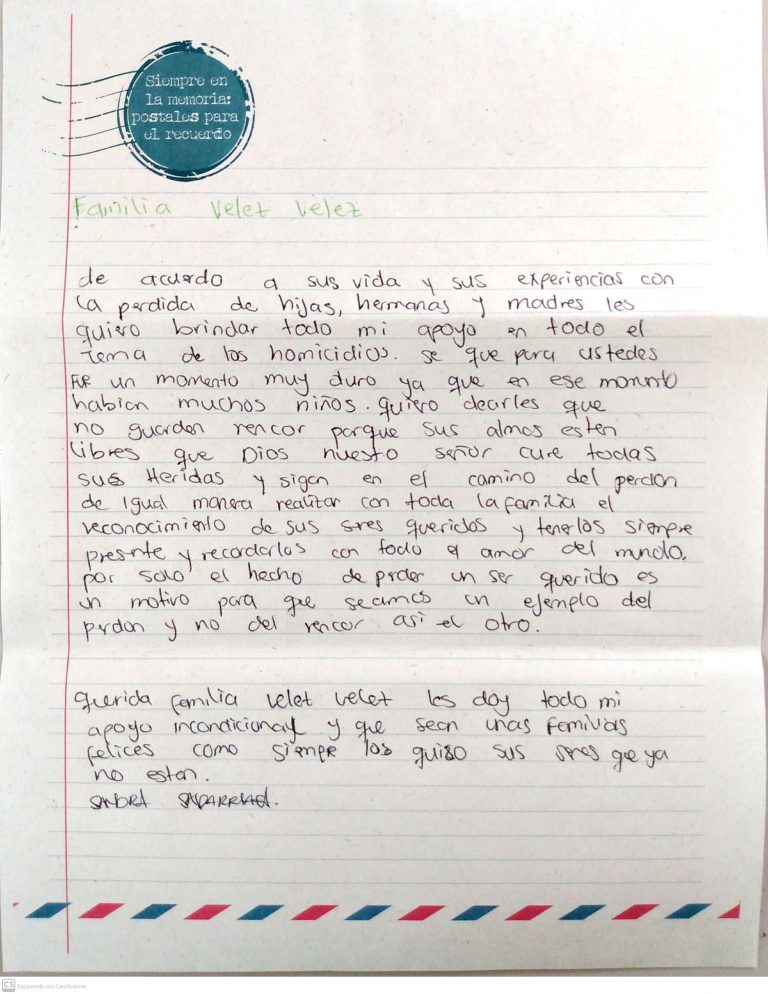 Siempre en
la memoria:
postales para
el recuerdo
Familia Velez Velez
de acuerdo a sus vida y sus experiencias con
la perdida de hijas, hermanas y madres les
quiero brindar todo mi apoyo en todo el
tema de los homicidios. se que para ustedes
fue un momento muy duro ya que en ese momento
habian muchos niños. quiero decirles que
no guarden rencor porque sus almas esten
libres que Dios nuestro señor cure todas
sus Heridas y sigan en el camino del perdon
de igual manera realizar con toda la familia el
reconocimiento de sus seres queridos y tenerlos siempre
presente y recordarlos con todo el amor del mundo.
por solo el hecho de perder un ser querido es
un motivo para que seamos un ejemplo del
perdon y no del rencor asi el otro.
querida familia velez velez les doy todo mi
apoyo incondicional y que sean unas familias
felices como siempre los quiso sus seres que ya
no estan.
SANDRA
CS Escaneado con CamScanner